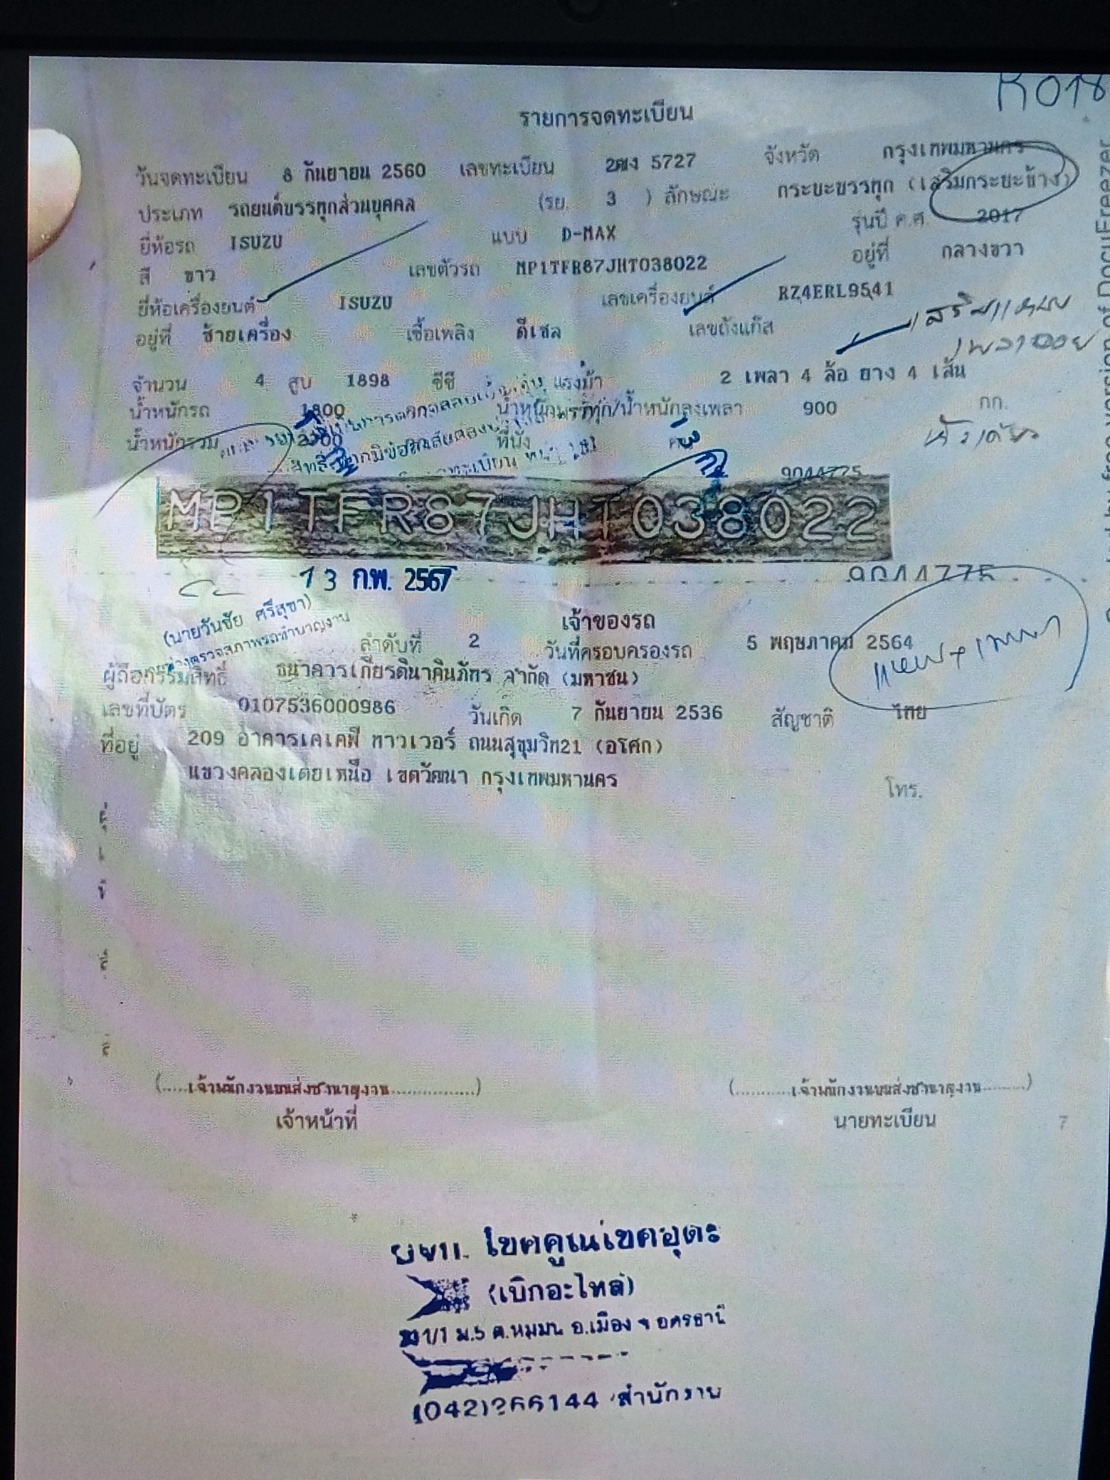 R018
รายการจดทะเบียน
วันจดทะเบียน 8 กันยายน 2560 เลขทะเบียน 5727 จังหวัด กรุงเทพมหานคร
ประเภท รถยนต์บรรทุกส่วนบุคคล (รย. 3 ) ลักษณะ กระบะบรรทุก (เสริมกระบะข้าง)
ยี่ห้อรถ ISUZU แบบ D-MAX รุ่นปี ค.ศ. 2017
สี ขาว เลขตัวรถ MP1TFR87JHT038022 อยู่ที่ กลางขวา
ยี่ห้อเครื่องยนต์ ISUZU เลขเครื่องยนต์ RZ4ERL9541
อยู่ที่ ซ้ายเครื่อง เชื้อเพลิง ดีเซล เลขถังแก๊ส
เสริมแหนบ
เพลาลอย
จำนวน 4 สูบ 1898 ซีซี แรงม้า 2 เพลา 4 ล้อ ยาง 4 เส้น
น้ำหนักรถ 1800 น้ำหนักบรรทุก/น้ำหนักลงเพลา 900 กก.
น้ำหนักรวม ที่นั่ง
หัวเดียว
9044775
MP1TFR87JHT038022
13 ก.พ. 2567
9044775
(นายวันชัย ศรีสุขา)
ช่างตรวจสภาพรถชำนาญงาน
เจ้าของรถ
ลำดับที่ 2 วันที่ครอบครองรถ 5 พฤษภาคม 2564
ผู้ถือกรรมสิทธิ์ ธนาคารเกียรตินาคินภัทร จำกัด (มหาชน)
เลขที่บัตร 0107536000986 วันเกิด 7 กันยายน 2536 สัญชาติ ไทย
ที่อยู่ 209 อาคารเคเคพี ทาวเวอร์ ถนนสุขุมวิท21 (อโศก)
แขวงคลองเตยเหนือ เขตวัฒนา กรุงเทพมหานคร
โทร.
(.....เจ้าพนักงานขนส่งชำนาญงาน...............) (...........เจ้าพนักงานขนส่งชำนาญงาน.........)
เจ้าหน้าที่ นายทะเบียน
7
(เบิกอะไหล่)
ม.5 ต.หมูม่น อ.เมือง จ.อุดรธานี
(042)266144 สำนักงาน